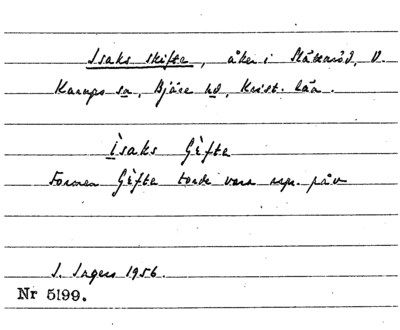 Isaks skifte, åker i Slåttaröd, V.
Karups sn, Bjäre hd, Krist. län.
Ìsaks Gèfte
Formen Gèfte torde vara repr. på v
S. Ingers 1956.
Nr 5199.